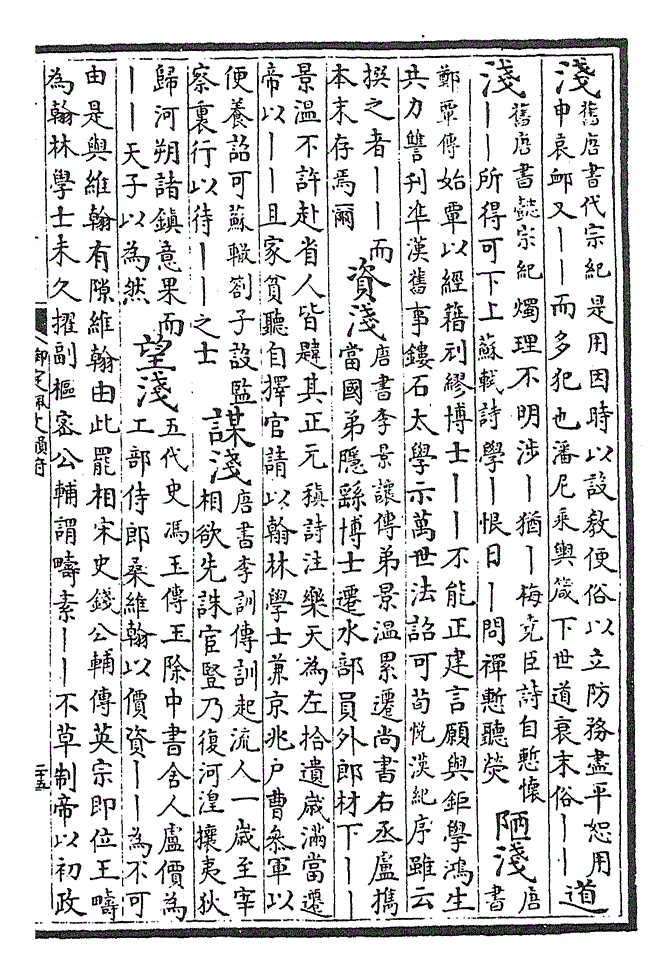 淺
舊唐書代宗紀是用因時以設教便俗以立防務盡平恕用
申哀卹又——而多犯也潘尼乘輿箴下世道衰末俗——
道
淺
舊唐書懿宗紀燭理不明涉—猶—梅堯臣詩自慙懷
——所得可下上蘇軾詩學—恨日—問禪慙聽熒
陋淺
唐
書
鄭覃傳始覃以經籍刓繆博士——不能正建言願與鉅學鴻生
共力讐刊準漢舊事鏤石太學示萬世法詔可荀悅漢紀序雖云
撰之者——而
本末存焉爾
資淺
唐書李景讓傳弟景溫累遷尚書右丞盧攜
當國弟隱繇博士遷水部員外郎材下——
景溫不許赴省人皆韙其正元稹詩注樂天為左拾遺歲滿當遷
帝以——且家貧聽自擇官請以翰林學士兼京兆户曹叅軍以
便養詔可蘇轍劄子設監
察裏行以待——之士
謀淺
唐書李訓傳訓起流人一歲至宰
相欲先誅宦豎乃復河湟攘夷狄
歸河朔諸鎮意果而
——天子以為然
望淺
五代史馮玉傳玉除中書舍人盧價為
工部侍郎桑維翰以價資——為不可
由是與維翰有隙維翰由此罷相宋史錢公輔傳英宗即位王疇
為翰林學士未久擢副樞密公輔謂疇素——不草制帝以初政
御定佩文韻府
二十五